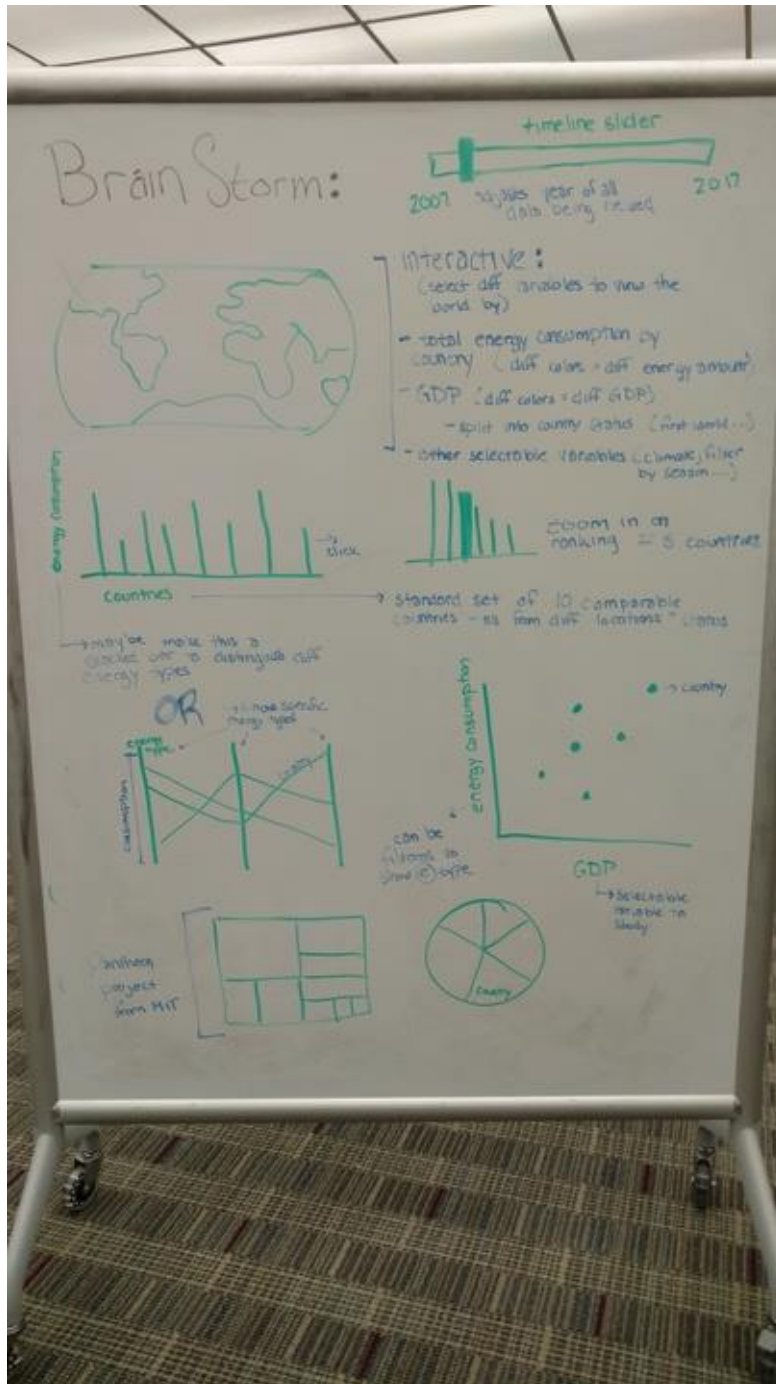 Brain Storm:
timeline slider
2007
2017
year of all
data being viewed
interactive:
(select diff variables to view the
world by)
- total energy consumption by
country (diff colors = diff energy amount)
- GDP (diff colors = diff GDP)
- split into country status (first world...)
- other selectable variables (climate, filter
by season...)
energy consumption
countries
click
zoom in on
ranking = 5 countries
standard set of 10 comparable
countries - from diff locations + status
maybe make this a
stacked to distinguish diff
energy types
OR
more specific
energy types
energy type
consumption
country
energy consumption
country
GDP
can be
filtered to
show e type
selectable
variable to
study
project
from MIT
country